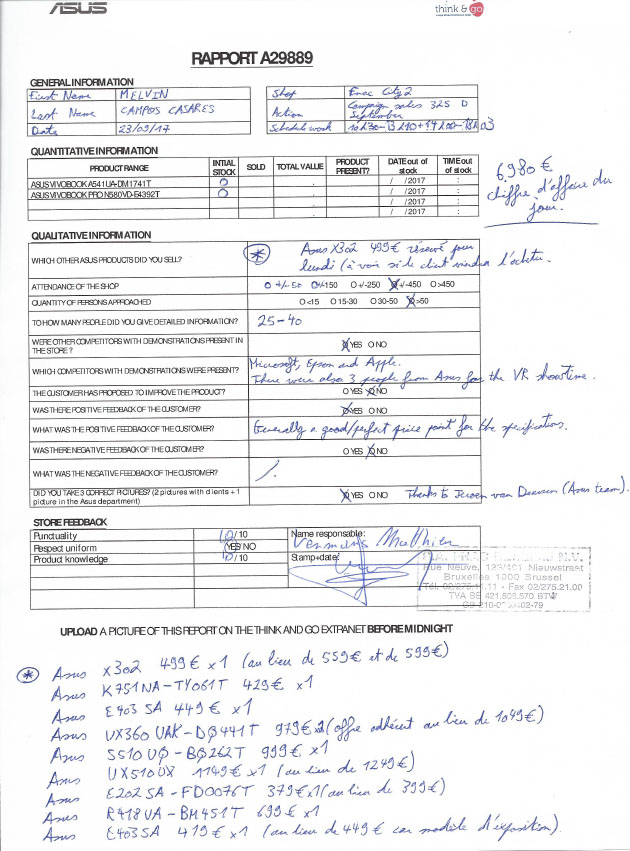 ASUS
think & go
RAPPORT A29889
GENERAL INFORMATION
First Name MELVIN
Last Name CAMPOS CASARES
Date 23/09/17
Shop Fnac City 2
Action Campaign sales 325 D September
Schedule work 10h30-13h10+14h00-18h03
QUANTITATIVE INFORMATION
PRODUCT RANGE INITIAL STOCK SOLD TOTAL VALUE PRODUCT PRESENT? DATE out of stock TIME out of stock
ASUS VIVOBOOK A541UA-DM1741T 0 / /2017 :
ASUS VIVOBOOK PRO N580VD-E4392T 0 / /2017 :
/ /2017 :
/ /2017 :
6980 €
chiffre d'affaire du
jour.
QUALITATIVE INFORMATION
WHICH OTHER ASUS PRODUCTS DID YOU SELL? * Asus X302 499€ réservé pour
lundi (à voir si le client viendra l'acheter.
ATTENDANCE OF THE SHOP O +/-50 O+/-150 O+/-250 O+/-450 O>450
QUANTITY OF PERSONS APPROACHED O<15 O 15-30 O 30-50 O>50
TO HOW MANY PEOPLE DID YOU GIVE DETAILED INFORMATION? 25-40
WERE OTHER COMPETITORS WITH DEMONSTRATIONS PRESENT IN THE STORE ? O YES O NO
WHICH COMPETITORS WITH DEMONSTRATIONS WERE PRESENT? Microsoft, Epson and Apple.
There were also 3 people from Asus for the VR showtime.
THE CUSTOMER HAS PROPOSED TO IMPROVE THE PRODUCT? O YES O NO
WAS THERE POSITIVE FEEDBACK OF THE CUSTOMER? O YES O NO
WHAT WAS THE POSITIVE FEEDBACK OF THE CUSTOMER? Generally a good/perfect price point for the specifications.
WAS THERE NEGATIVE FEEDBACK OF THE CUSTOMER? O YES O NO
WHAT WAS THE NEGATIVE FEEDBACK OF THE CUSTOMER? /.
DID YOU TAKE 3 CORRECT PICTURES? (2 pictures with clients + 1 picture in the Asus department) O YES O NO Thanks to Jeroen van (Asus team).
STORE FEEDBACK
Punctuality 10/10
Respect uniform YES/ NO
Product knowledge 10/10
Name responsable: Matthieu
Stamp+date:
Rue Neuve, 123/101 Nieuwstraat
Bruxelles 1000 Brussel
Tél. 02/275.11.11 - Fax 02/275.21.00
TVA BE 421.506.570 BTW
UPLOAD A PICTURE OF THIS REPORT ON THE THINK AND GO EXTRANET BEFORE MIDNIGHT
* Asus X302 499€ x1 (au lieu de 559€ et de 599€)
Asus K751NA-TY061T 429€ x1
Asus E403 SA 449€ x1
Asus UX360 UAK-DQ441T 979€ x1 (offre adhérent au lieu de 1049€)
Asus S510 UQ-BQ262T 999€ x1
Asus UX510UX 1149€ x1 (au lieu de 1249€)
Asus E202 SA-FD0076T 379€ x1 (au lieu de 399€)
Asus R418UA-BM451T 699€ x1
Asus E403SA 419€ x1 (au lieu de 449€ car modèle d'exposition).